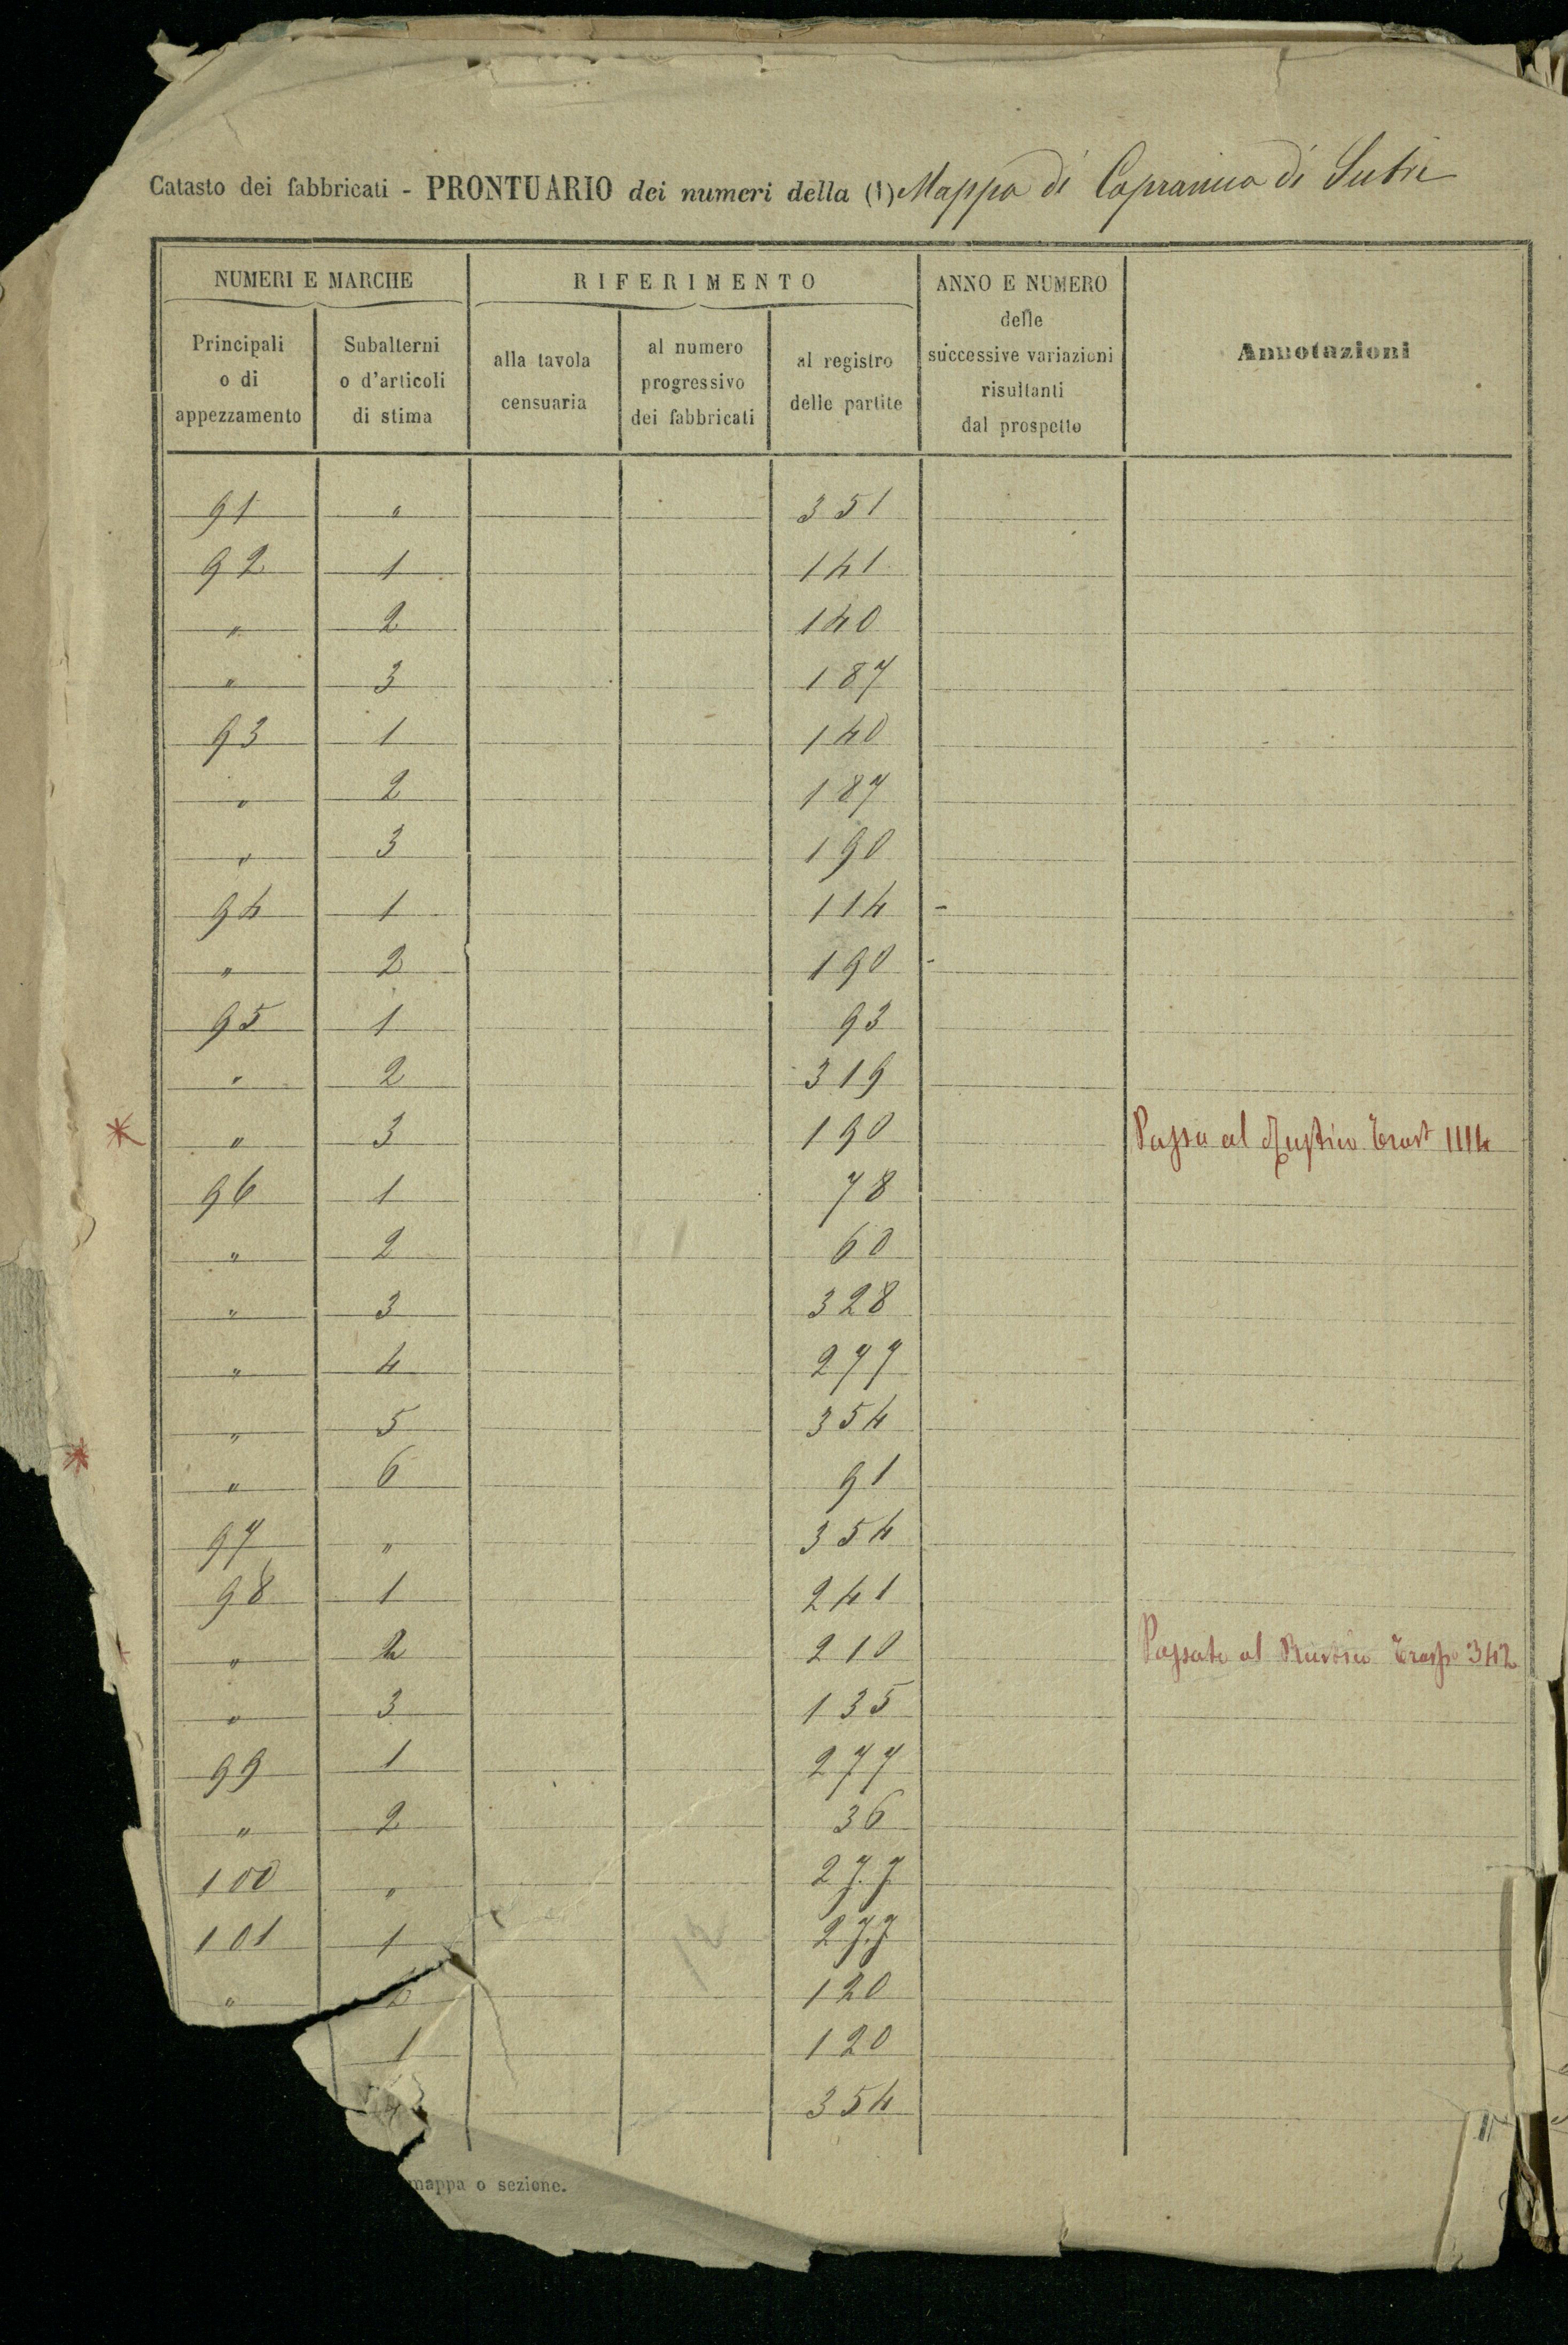 Catasto dei fabbricati - PRONTUARIO dei numeri della (1) Mappa di Capranica di Sutri
NUMERI E MARCHE
RIFERIMENTO
ANNO E NUMERO
delle
successive variazioni
risultanti
dal prospetto
Annotazioni
Principali
o di
appezzamento
Subalterni
o d'articoli
di stima
alla tavola
censuaria
al numero
progressivo
dei fabbricati
al registro
delle partite
91 " 351
92 1 141
" 2 140
" 3 187
93 1 140
" 2 187
" 3 190
94 1 114 -
" 2 190 -
95 1 93
" 2 319
* " 3 190 Passa al Rustico 1114
96 1 78
" 2 60
" 3 328
" 4 277
" 5 354
* " 6 91
97 " 354
98 1 241
" 2 210 Passato al Rustico 342
" 3 135
99 1 277
" 2 36
100 " 277
101 1 277
" 2 120
1 120
354
12
mappa o sezione.